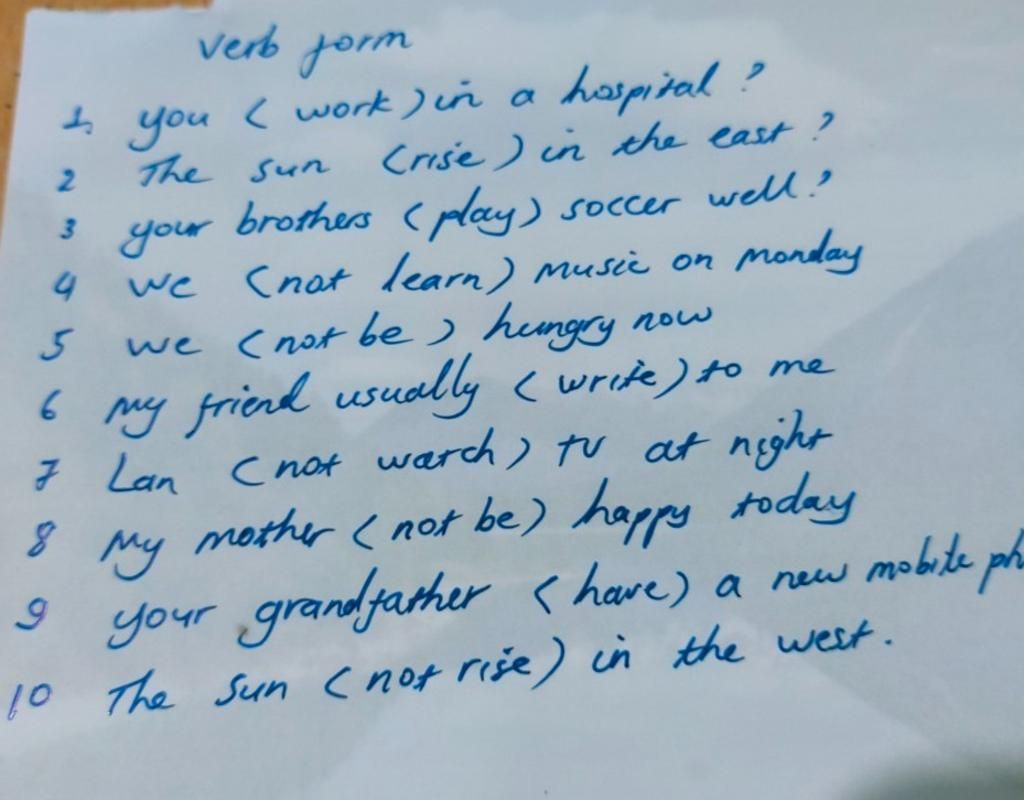 verb form
1, you ( work ) in a hospital ?
2 The sun (rise ) in the east ?
3 your brothers ( play) soccer well ?
4 we (not learn ) music on monday
5 we (not be ) hungry now
6 my friend usually ( write ) to me
7 Lan (not watch ) TV at night
8 My mother ( not be ) happy today
9 your grandfather ( have ) a new mobile ph
10 The sun ( not rise ) in the west .